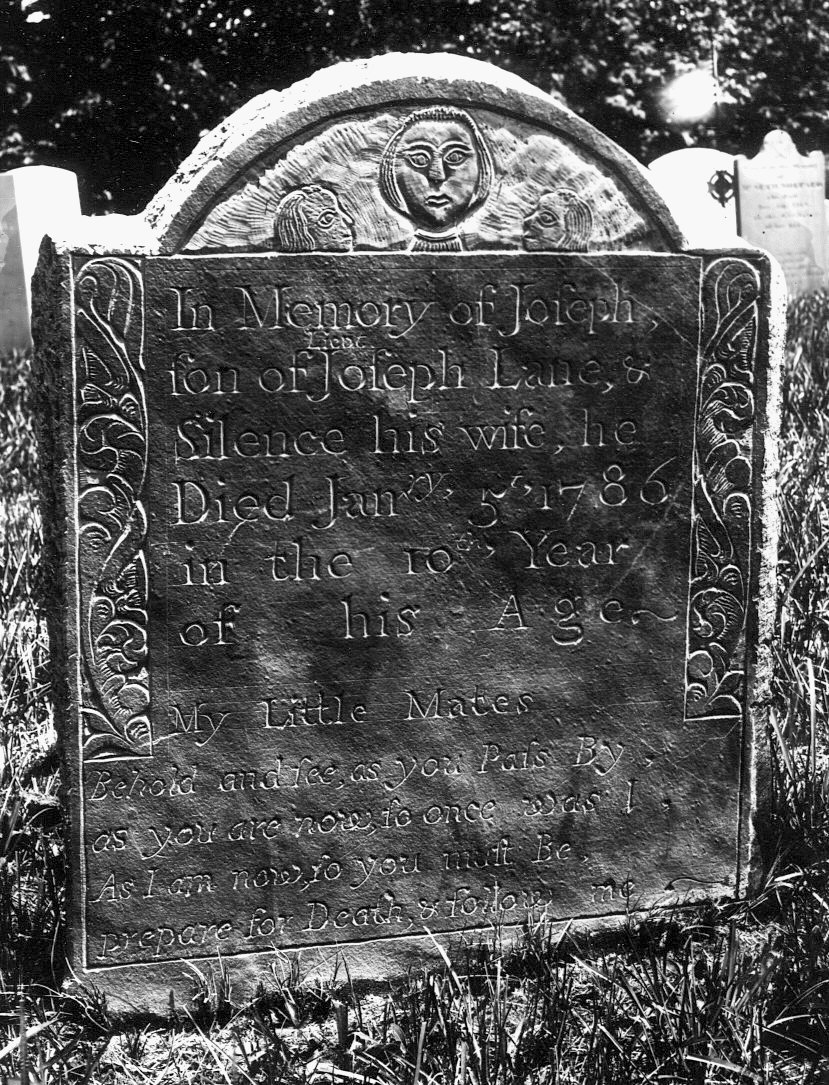 In Memory of Joſeph,
Lieut
ſon of Joſeph Lane, &
Silence his wife, he
Died Janry. 5t, 1786
in the 10th, Year
of his Age~
My Little Mates
Behold and ſee, as you Paſs By,
as you are now, ſo once was I,
As I am now, ſo you muſt Be,
prepare for Death, & follow me